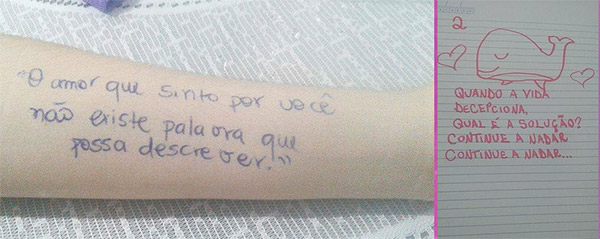 "O amor que sinto por você
não existe palavra que
possa descrever!"
2
QUANDO A VIDA
DECEPCIONA,
QUAL É A SOLUÇÃO?
CONTINUE A NADAR
CONTINUE A NADAR...